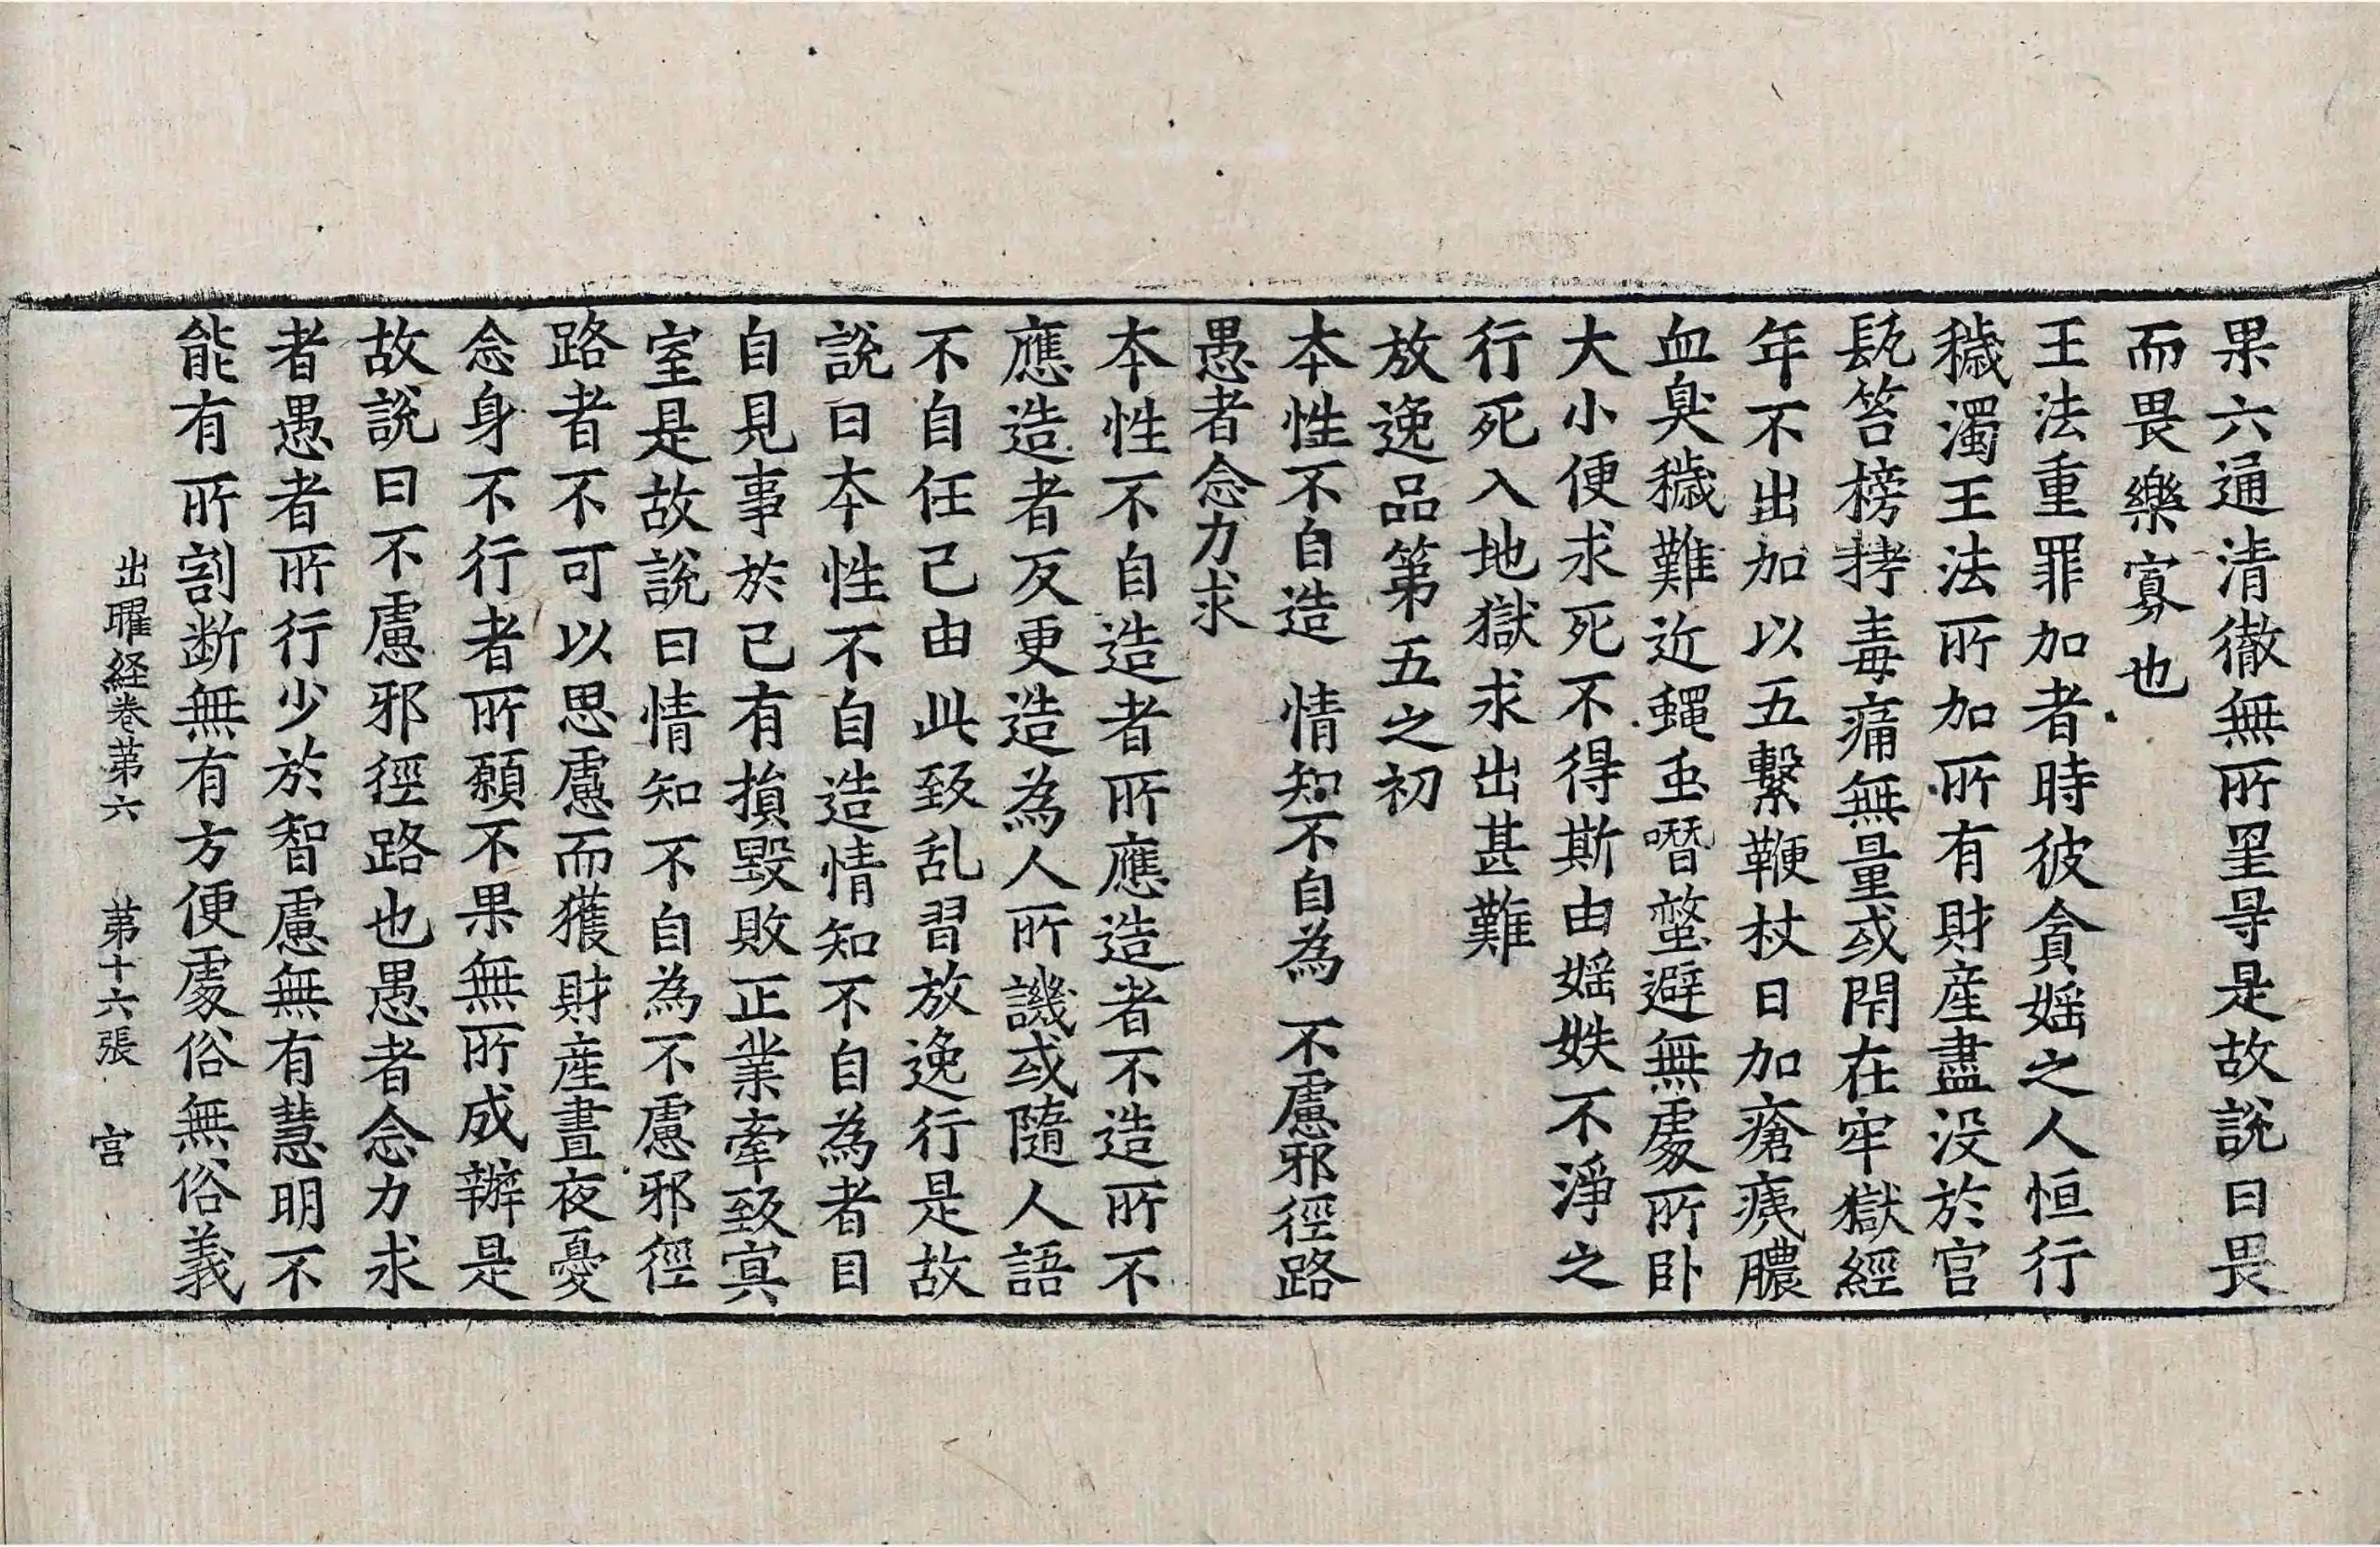 果六通清徹無所罣㝵是故說曰畏
而畏樂寡也
王法重罪加者時彼貪婬之人恒行
穢濁王法所加所有財產盡没於官
髡笞榜拷毒痛無量或閇在牢獄經
年不出加以五繫鞭杖日加瘡痍膿
血臭穢難近蠅䖝噆螫避無䖏所卧
大小便求死不得斯由婬妷不淨之
行死入地獄求出甚難
放逸品第五之初
本性不自造 情知不自為 不慮邪徑路
愚者念力求
本性不自造者所應造者不造所不
應造者反更造為人所譏或隨人語
不自任己由此致乱習放逸行是故
說曰本性不自造情知不自為者目
自見事於己有損毀敗正業牽致冥
室是故說曰情知不自為不慮邪徑
路者不可以思慮而獲財產晝夜憂
念身不行者所願不果無所成辦是
故說曰不慮邪徑路也愚者念力求
者愚者所行少於智慮無有慧明不
能有所割断無有方便䖏俗無俗義
出曜経卷第六 第十六張 宫